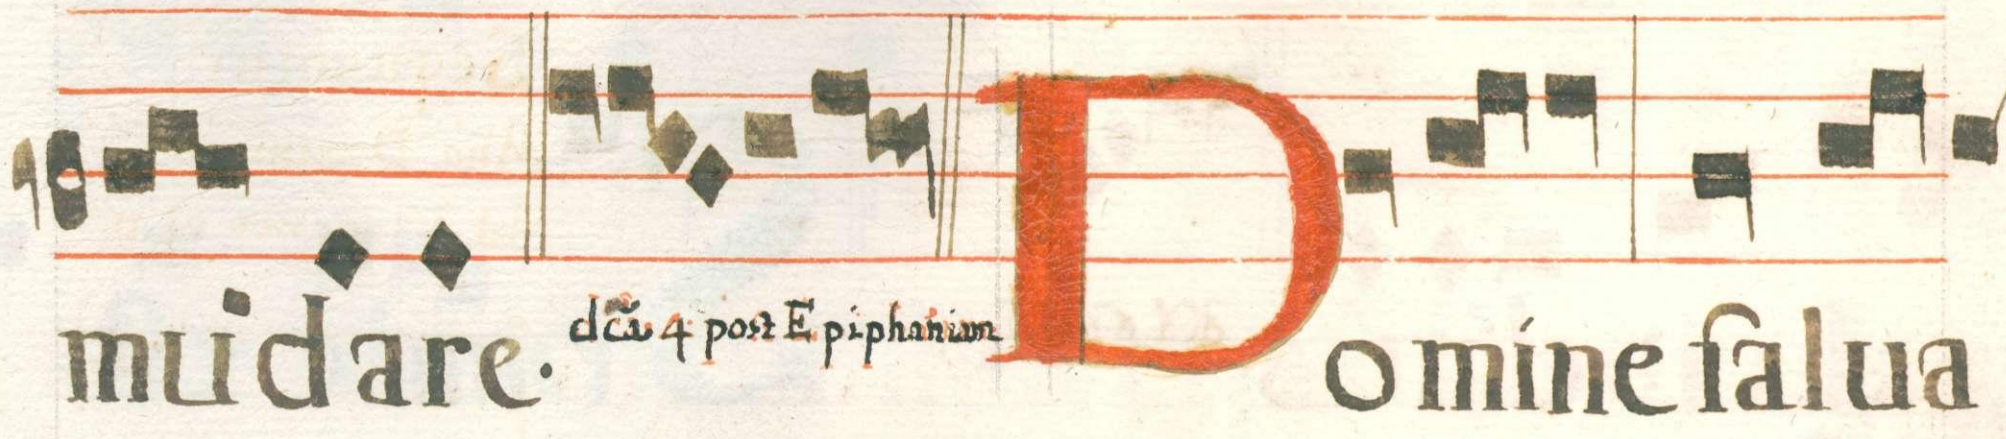 mūdare. dcā 4 post Epiphaniam Domine salua